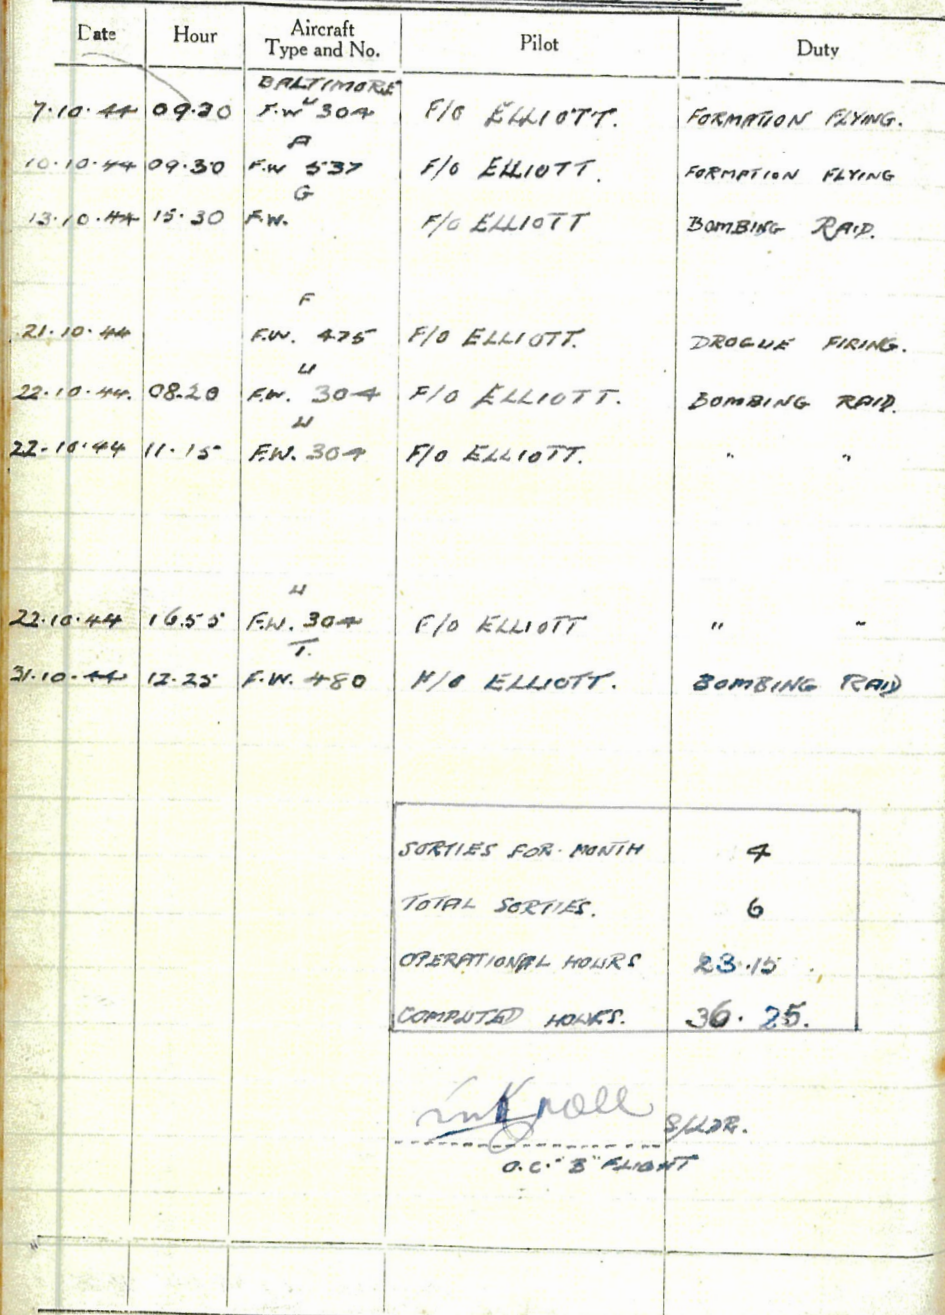 Date Hour Aircraft Type and No. Pilot Duty
BALTIMORE
7.10.44 09.20 F.W U 304 F/O ELLIOTT. FORMATION FLYING.
A
10.10.44 09.30 F.W 537 F/O ELLIOTT. FORMATION FLYING
G
13.10.44 15.30 F.W. F/O ELLIOTT BOMBING RAID.
F
21.10.44 F.W. 475 F/O ELLIOTT. DROGUE FIRING.
U
22.10.44. 08.20 F.W. 304 F/O ELLIOTT. BOMBING RAID.
U
22.10.44 11.15 F.W. 304 F/O ELLIOTT. " "
U
22.10.44 16.55 F.W. 304 F/O ELLIOTT " "
T.
31.10.44 12.25 F.W. 480 F/O ELLIOTT. BOMBING RAID
SORTIES FOR MONTH 4
TOTAL SORTIES. 6
OPERATIONAL HOURS 23.15
COMPUTED HOURS. 36.25.
S/LDR.
O.C. "B" FLIGHT